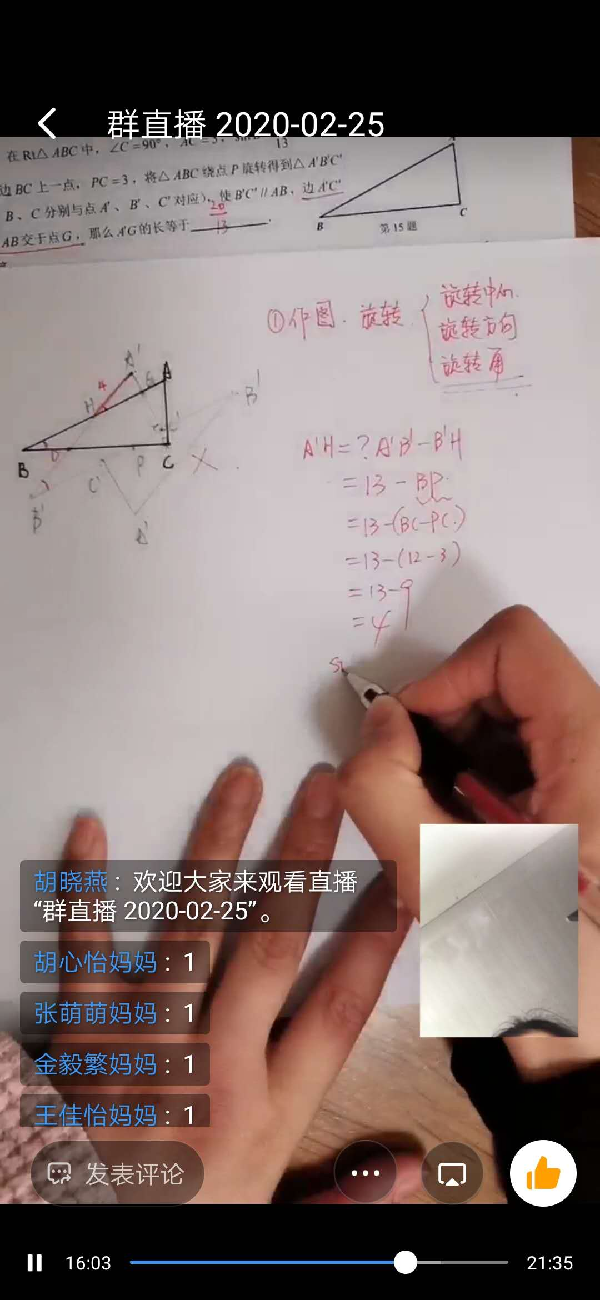 群直播 2020-02-25
在Rt△ABC中，∠C=90°，AC=5，
13
边BC上一点，PC=3，将△ABC绕点P旋转得到△A'B'C'
B、C分别与点A'、B'、C'对应），使B'C'∥AB，边A'C'
AB交于点G，那么A'G的长等于
20
13
B
C
第15题
①作图. 旋转
旋转中心.
旋转方向
旋转角
A'
A
4
G
H
C'
B'
B
P
C
C'
B'
A'
A'H=? A'B'-B'H
=13-BP.
=13-(BC-PC.)
=13-(12-3)
=13-9
=4
胡晓燕：欢迎大家来观看直播
“群直播 2020-02-25”。
胡心怡妈妈：1
张萌萌妈妈：1
金毅繁妈妈：1
王佳怡妈妈：1
发表评论
16:03
21:35